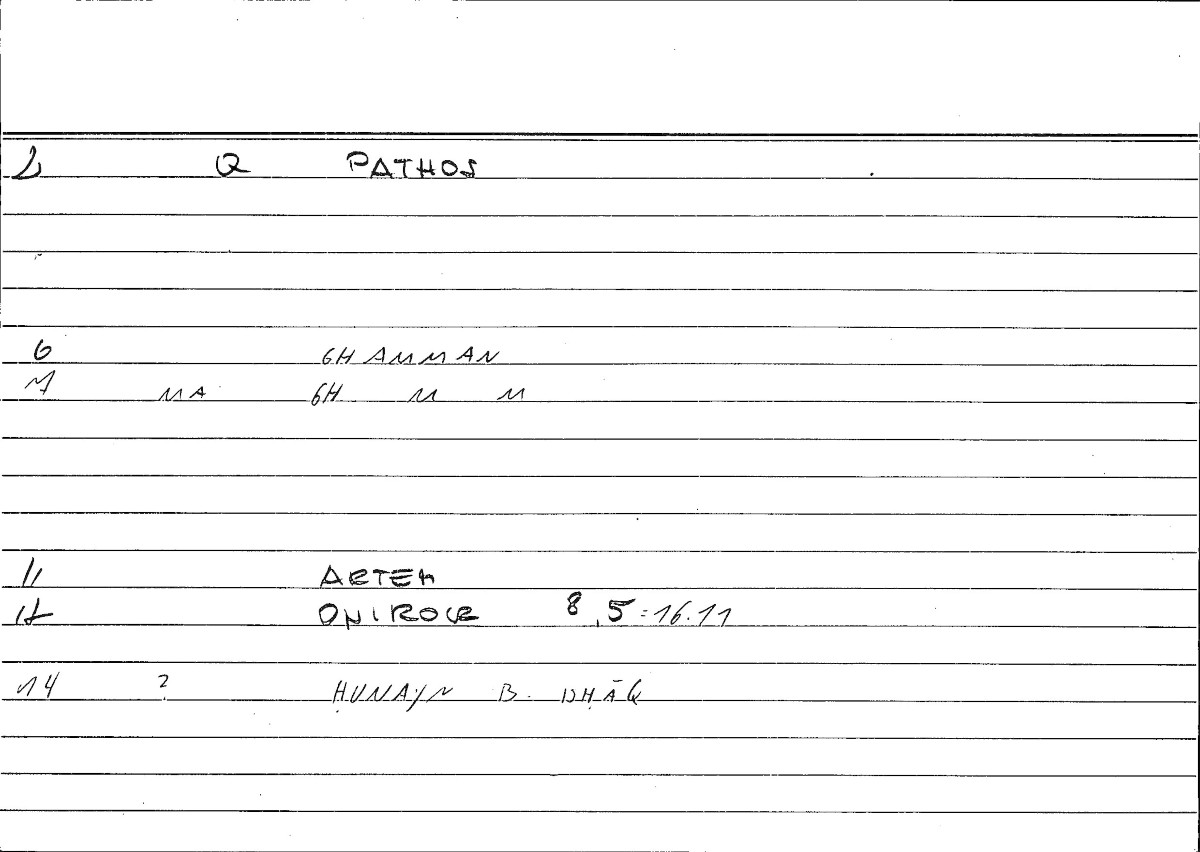 2 Q PATHOS
6 GHAMMAN
7 MA GH M M
11 ARTEM
12 ONIROCR 8,5:16.11
14 ? ḤUNAYN B. ISḤĀQ